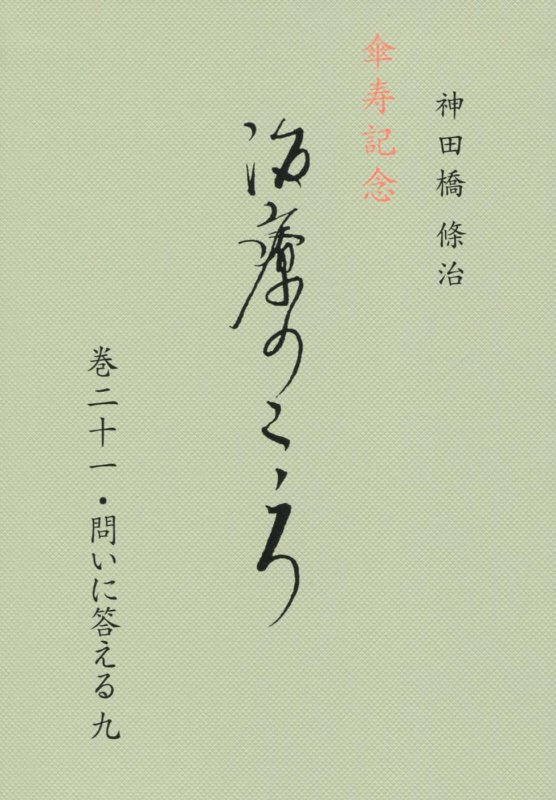 神田橋 條治
傘寿記念
治療のこゝろ
巻二十一・問いに答える 九